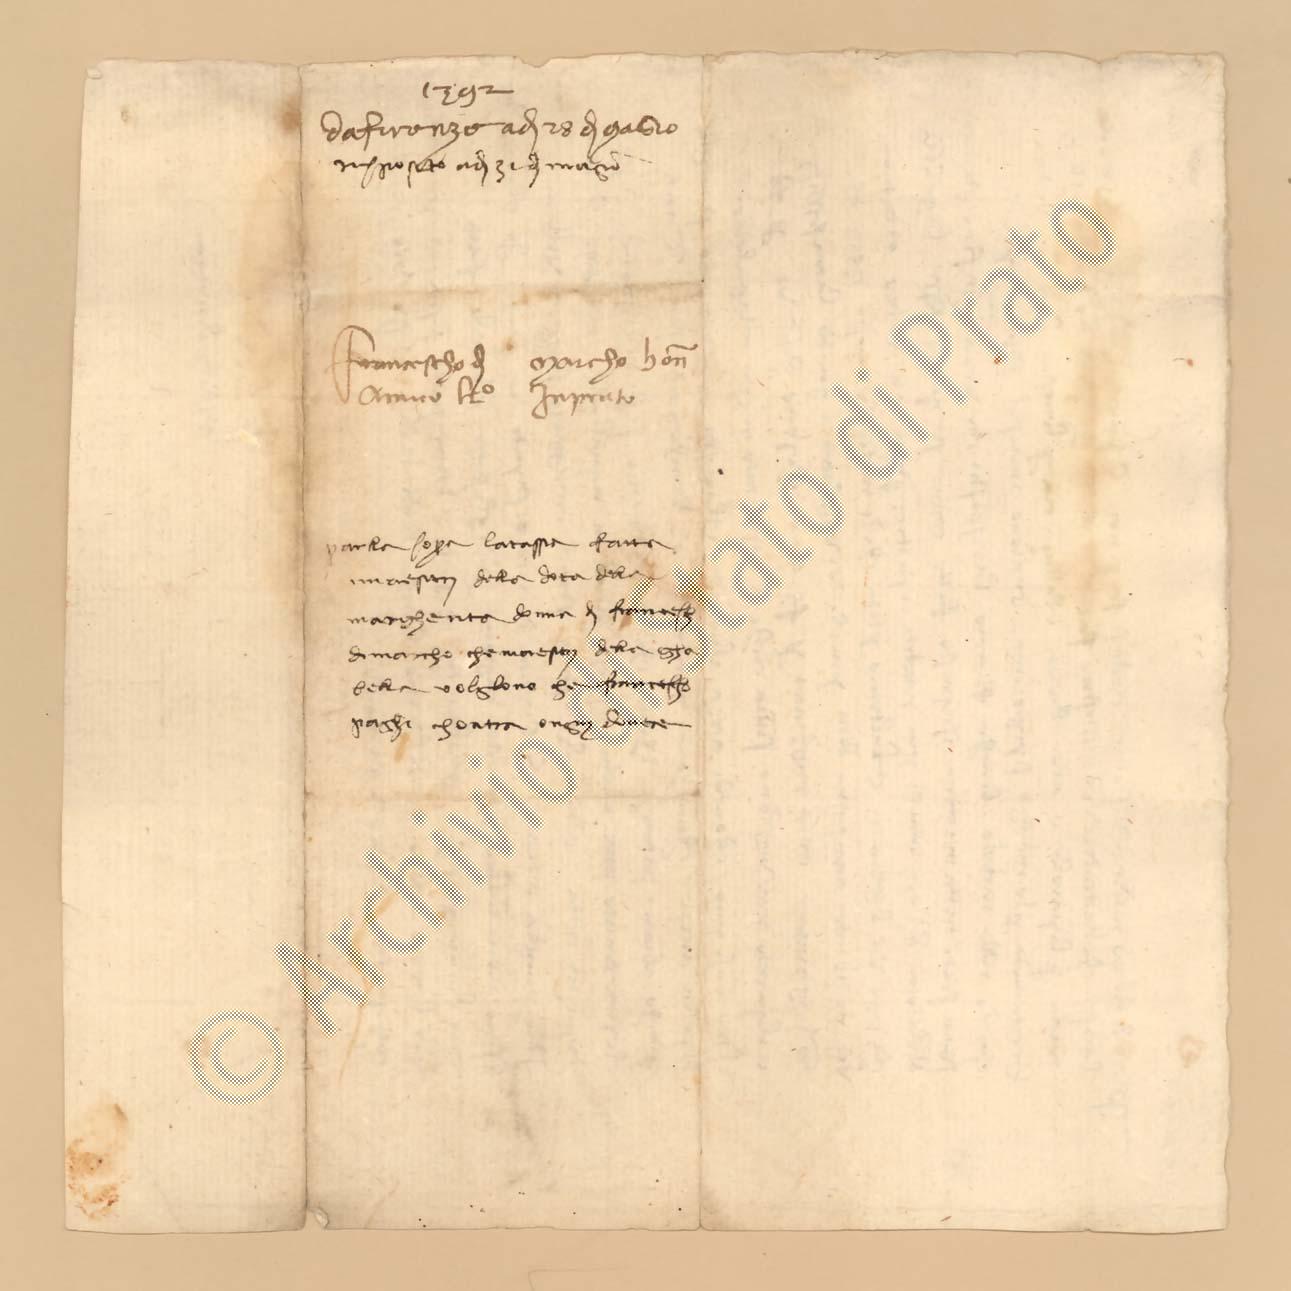 1392
da firenze adj 28 dj magio
risposto adj 31 dj magio
Francescho dj Marcho
Amico kro Inprato
parla sopra latassa fatta
maestrj della dota della
margherita donna dj francescho
dimarcho che maestrj della gha
bella volglono che francescho
paghi chontra ongnj dovere
© Archivio di Stato di Prato